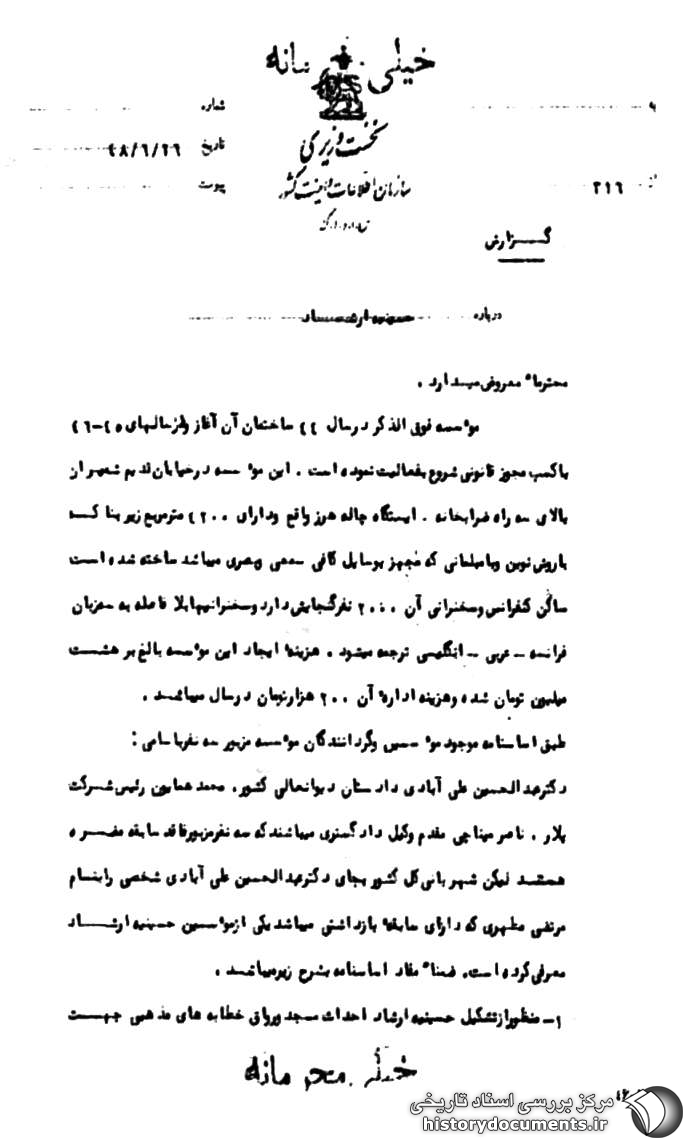 خیلی محرمانه
نخست وزیری
سازمان اطلاعات و امنیت کشور
به
شماره
تاریخ ۴۸/۶/۲۶
از ۳۱۶
پیوست
گزارش
درباره حسینیه ارشاد
محترماً معروض میدارد.
موسسه فوق الذکر در سال ۴۴ ساختمان آن آغاز و از سالهای ۴۵-۴۶
با کسب مجوز قانونی شروع بفعالیت نموده است. این موسسه در خیابان قدیم شمیران
بالای سه راه ضرابخانه. ایستگاه چاله هرز واقع و دارای ۴۲۰۰ مترمربع زیر بنا که
با روش نوین و با مبلمانی که مجهز بوسایل کافی سمعی و بصری میباشد ساخته شده است
سالن کنفرانس و سخنرانی آن ۲۰۰۰ نفر گنجایش دارد و سخنرانیها بلا فاصله به سه زبان
فرانسه - عربی - انگلیسی ترجمه میشود. هزینه ایجاد این موسسه بالغ بر هشت
میلیون تومان شده و هزینه اداره آن ۲۰۰ هزار تومان در سال میباشد.
طبق اساسنامه موجود موسسین و گردانندگان موسسه مزبور سه نفر باسامی:
دکتر عبدالحسین علی آبادی دادستان دیوانعالی کشور. محمد همایون رئیس شرکت
پلار. ناصر میناچی مقدم وکیل دادگستری میباشند که سه نفر مزبور فاقد سابقه مضره
هستند لیکن شهربانی کل کشور بجای دکتر عبدالحسین علی آبادی شخصی را بنام
مرتضی مطهری که دارای سابقه بازداشتی میباشد یکی از موسسین حسینیه ارشاد
معرفی کرده است. ضمناً مفاد اساسنامه بشرح زیر میباشد.
۱- منظور از تشکیل حسینیه ارشاد احداث مسجد و رواق خطابه های مذهبی جهت
خیلی محرمانه
مرکز بررسی اسناد تاریخی
historydocuments.ir